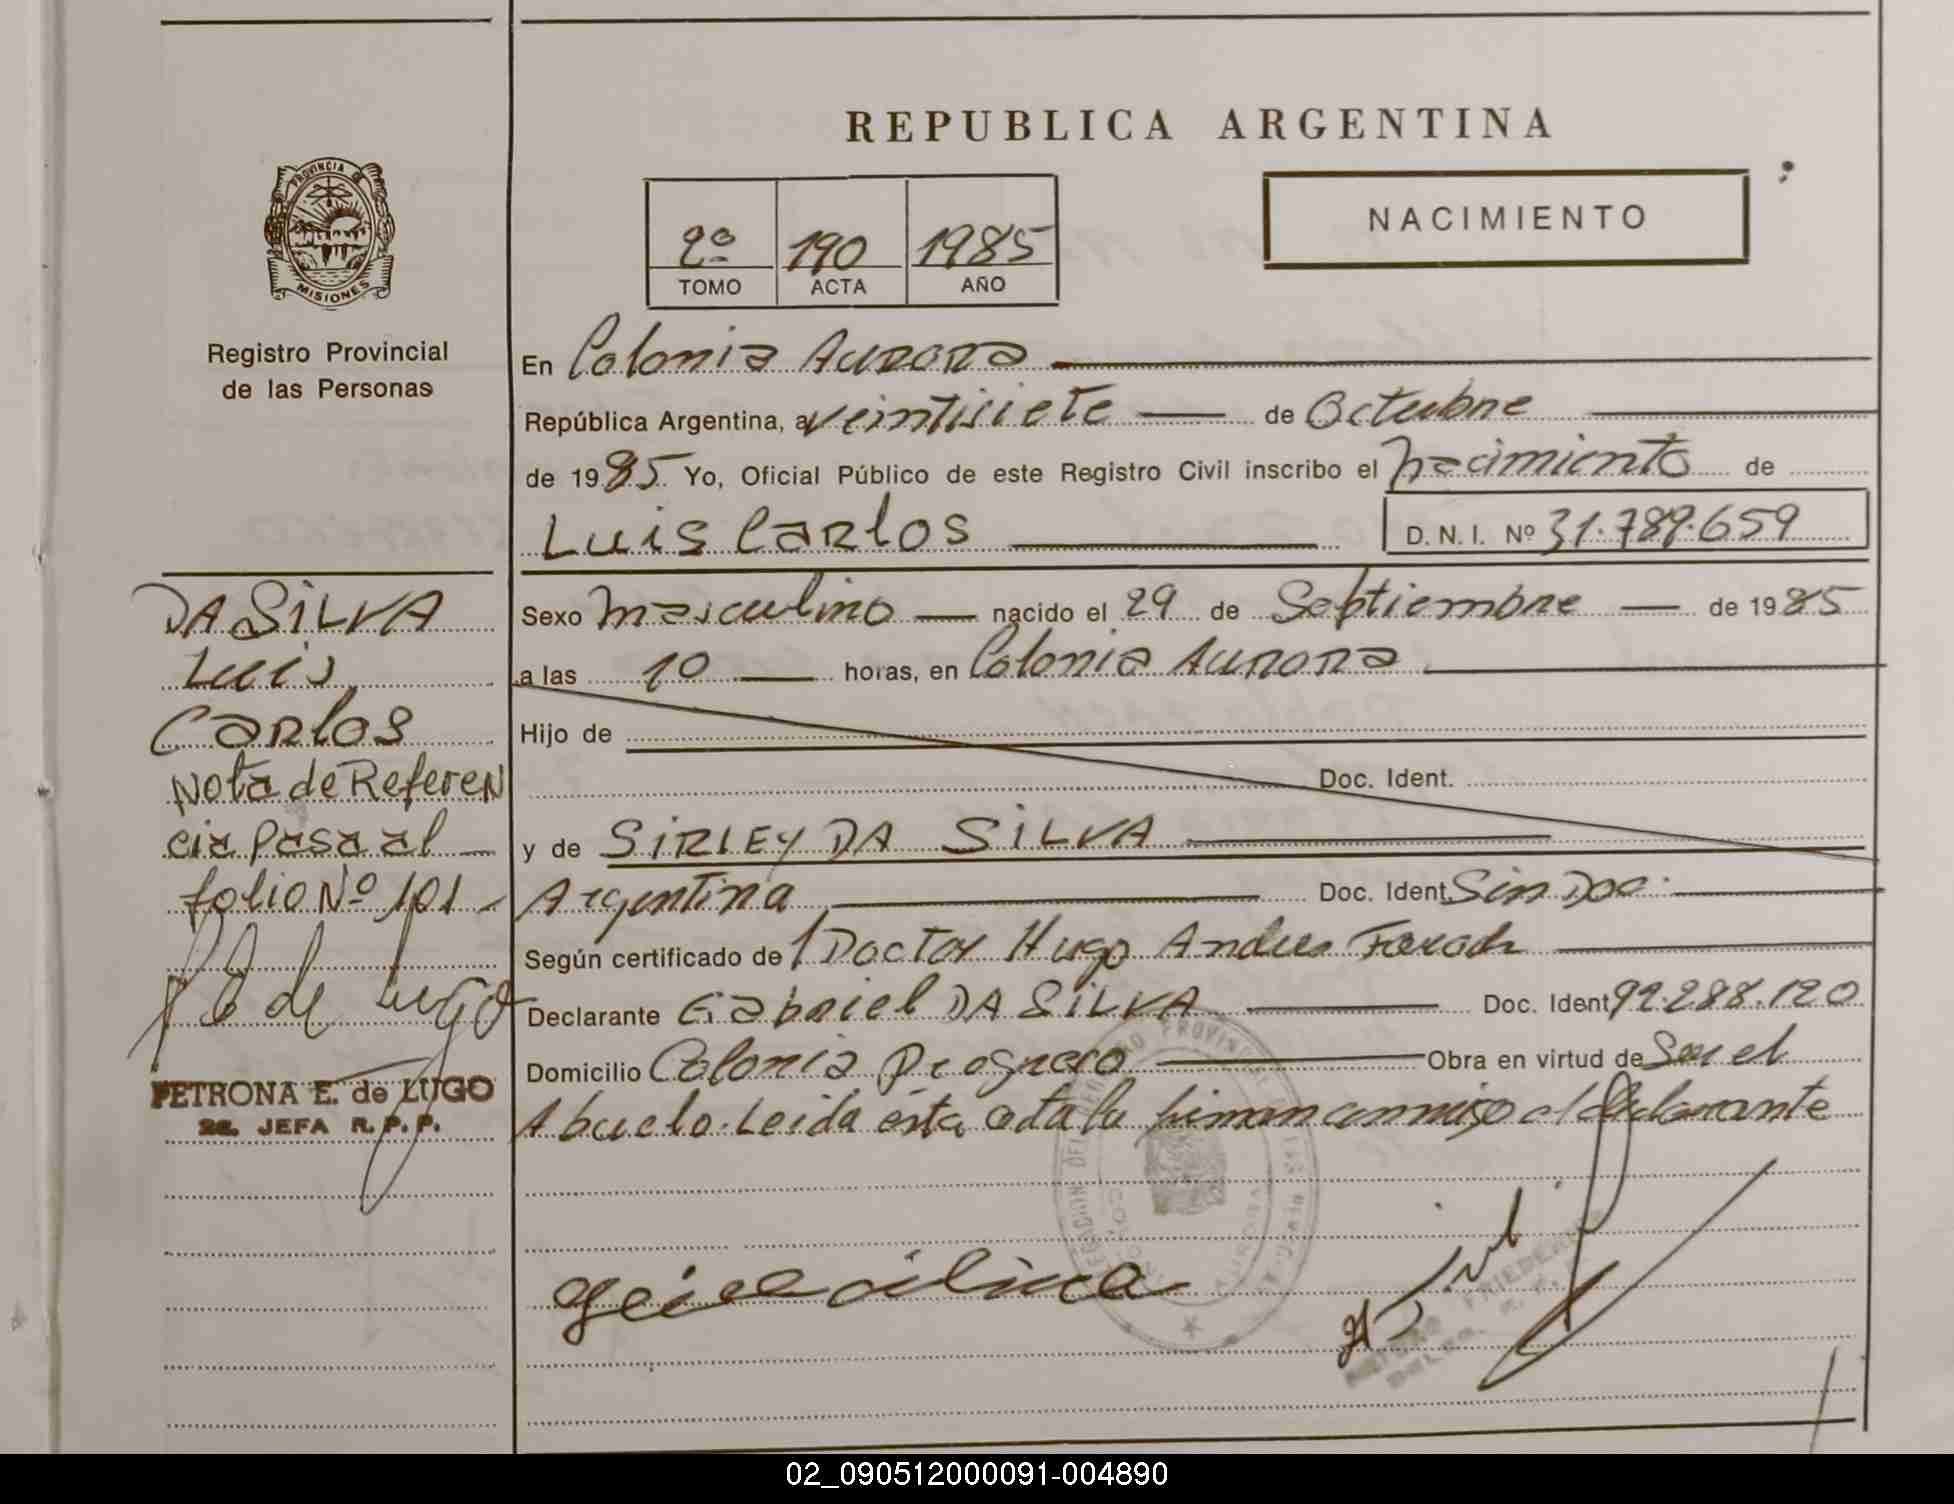 REPUBLICA ARGENTINA
PROVINCIA DE
MISIONES
Registro Provincial
de las Personas
2º 190 1985
TOMO ACTA AÑO
NACIMIENTO
En Colonia Aurora
República Argentina, a veintisiete de Octubre
de 1985 Yo, Oficial Público de este Registro Civil inscribo el nacimiento de
Luis Carlos D. N. I. Nº 31.789.659
DA SILVA
Luis
Carlos
Nota de Referen
cia pasa al
folio Nº 101
P E de Lugo
PETRONA E. de LUGO
2a. JEFA R.P.P.
Sexo masculino nacido el 29 de Septiembre de 1985
a las 10 horas, en Colonia Aurora
Hijo de
Doc. Ident.
y de SIRLEY DA SILVA
Argentina Doc. Ident. Sin Doc.
Según certificado de Doctor Hugo Andres
Declarante Gabriel DA SILVA Doc. Ident 92.288.120
Domicilio Colonia Progreso Obra en virtud de Ser el
Abuelo. Leida ésta acta la firman conmigo el declarante
02_090512000091-004890